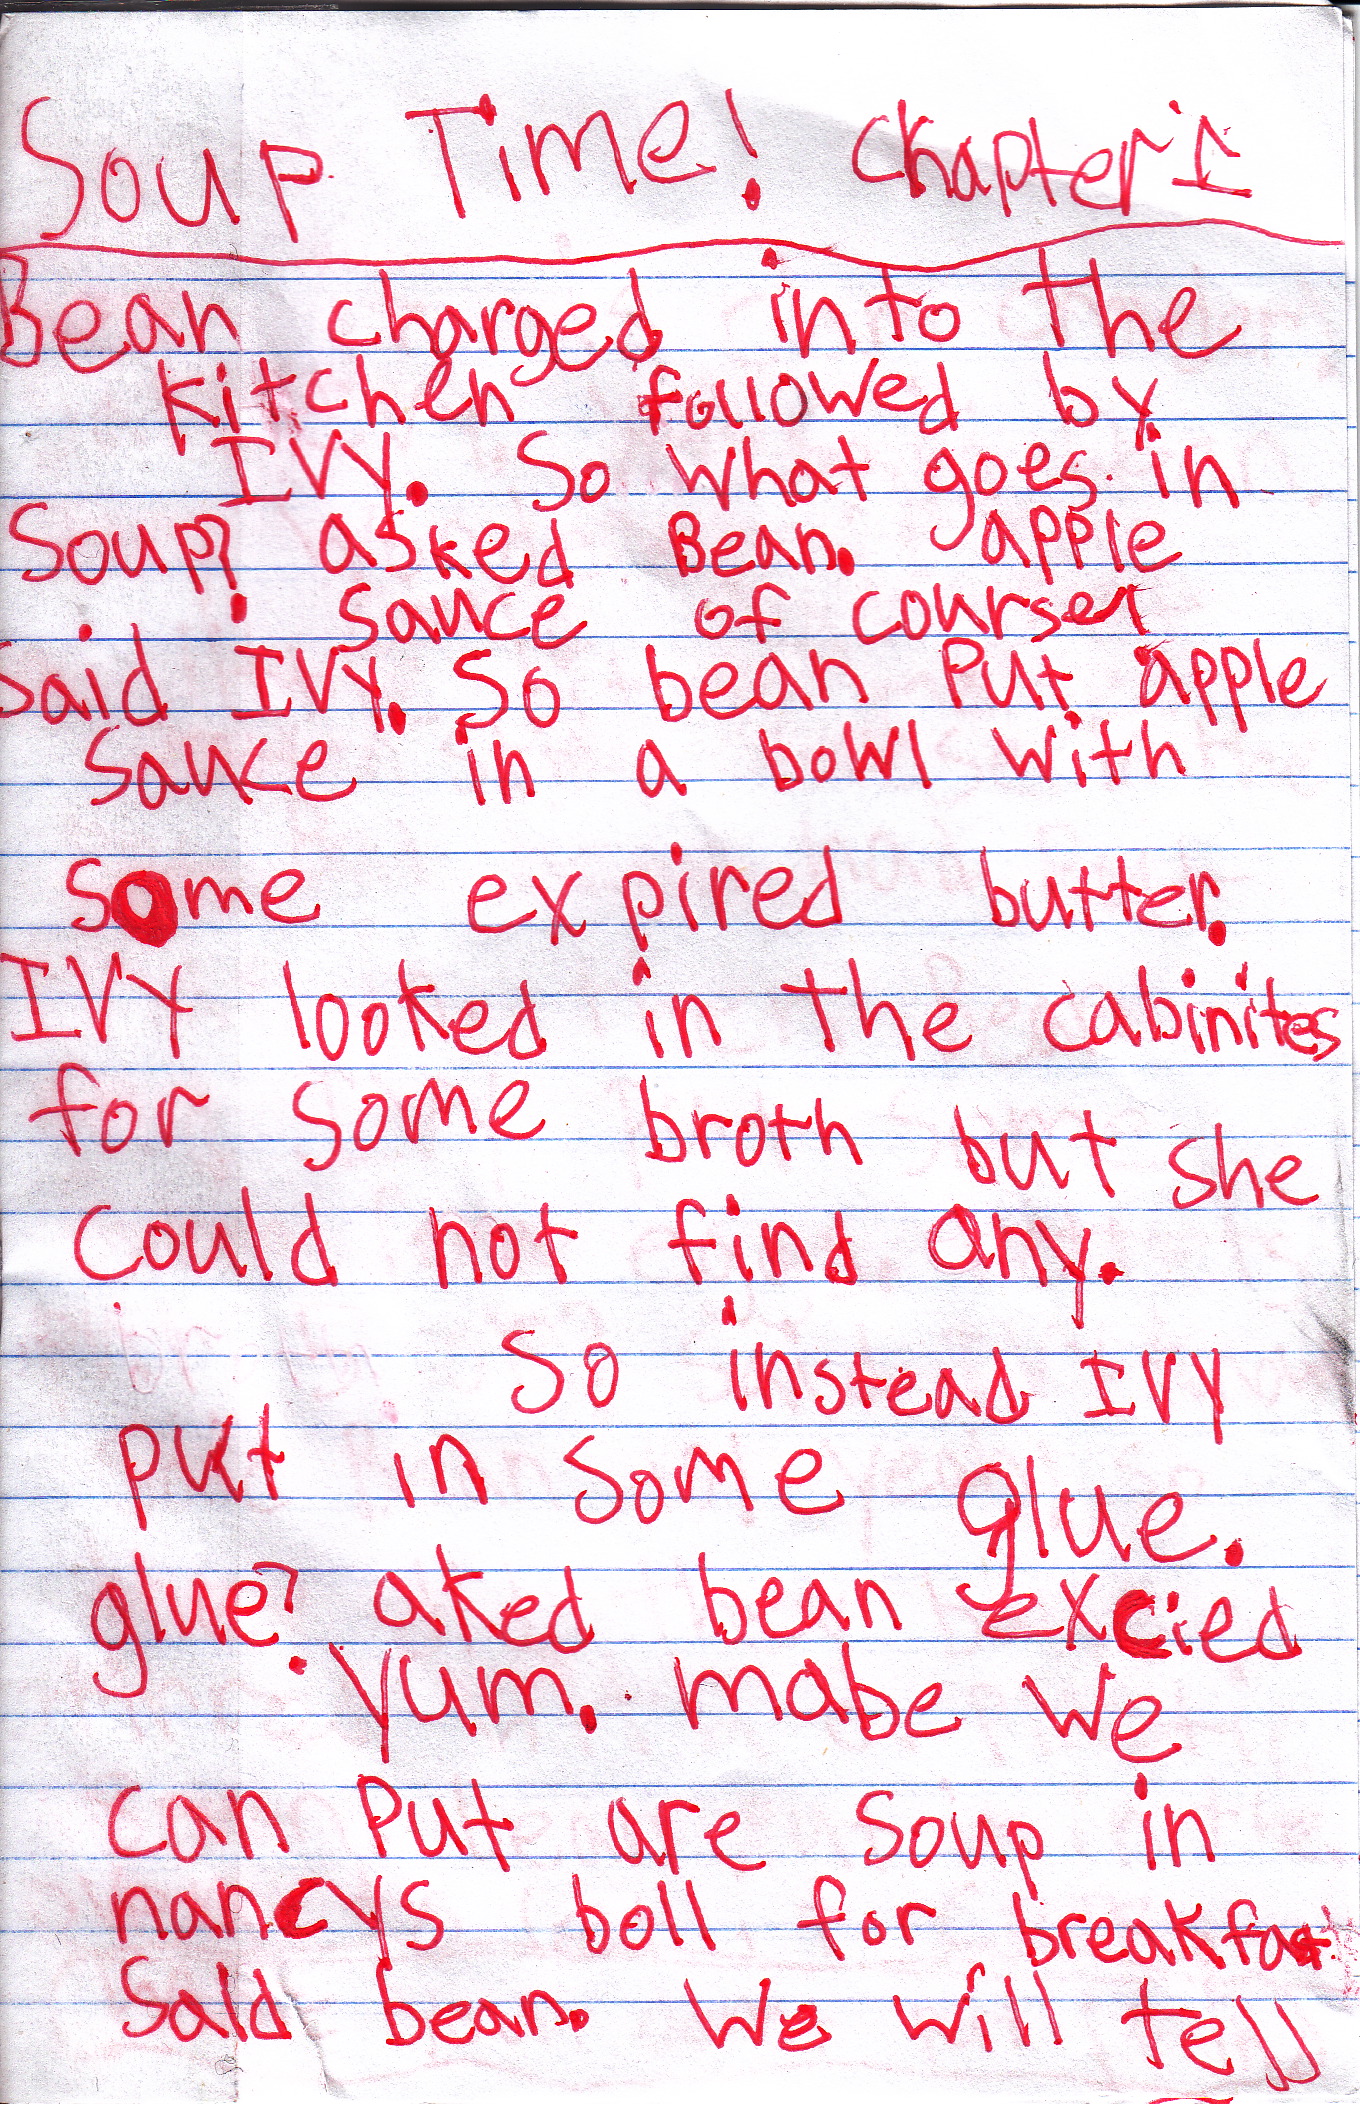 Soup Time! chapter 1
Bean charged into the
kitchen followed by
IVY. So what goes in
Soup? asked Bean. apple
sauce of course
said IVY. So bean Put apple
sauce in a bowl with
some expired butter.
IVY looked in the cabinites
for some broth but she
could not find any.
So instead IVY
put in some glue.
glue? aked bean excied
yum. mabe we
can Put are soup in
nancys boll for breakfast
Said bean. We will tell